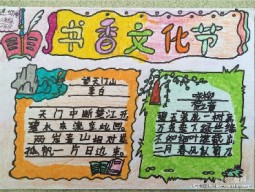 书香文化节
望天门山
李白
天门中断楚江开
碧水东流至此回
两岸青山相对出
孤帆一片日边来
咏柳
碧玉妆成一树高
万条垂下绿丝绦
不知细叶谁裁出
二月春风似剪刀